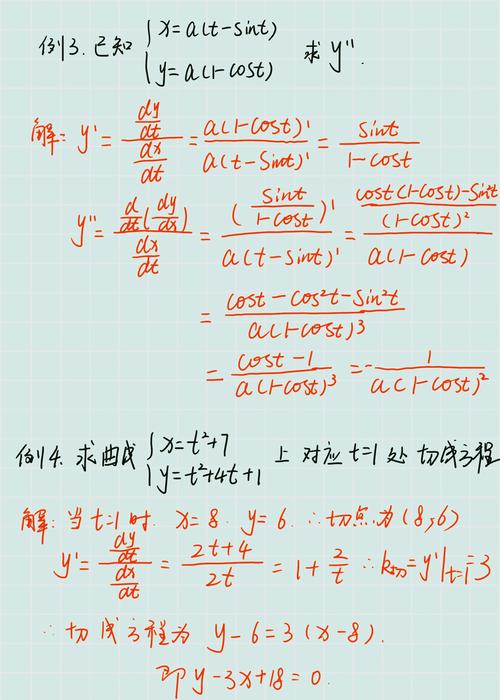 例3. 已知 { x=a(t-sint) y=a(1-cost) 求 y''.
解: y' = (dy/dt)/(dx/dt) = a(1-cost)'/a(t-sint)' = sint/(1-cost)
y'' = (d/dt(dy/dx))/(dx/dt) = (sint/(1-cost))'/a(t-sint)' = ((cost(1-cost)-sin²t)/(1-cost)²)/a(1-cost)
= (cost-cos²t-sin²t)/a(1-cost)³
= (cost-1)/a(1-cost)³ = -1/a(1-cost)²
例4. 求曲线 { x=t²+7 y=t²+4t+1 上对应t=1处切线方程
解: 当t=1时. x=8. y=6. ∴切点为(8,6)
y' = (dy/dt)/(dx/dt) = (2t+4)/2t = 1+2/t ∴k切=y'|t=1=3
∴切线方程为 y-6=3(x-8).
即 y-3x+18=0.